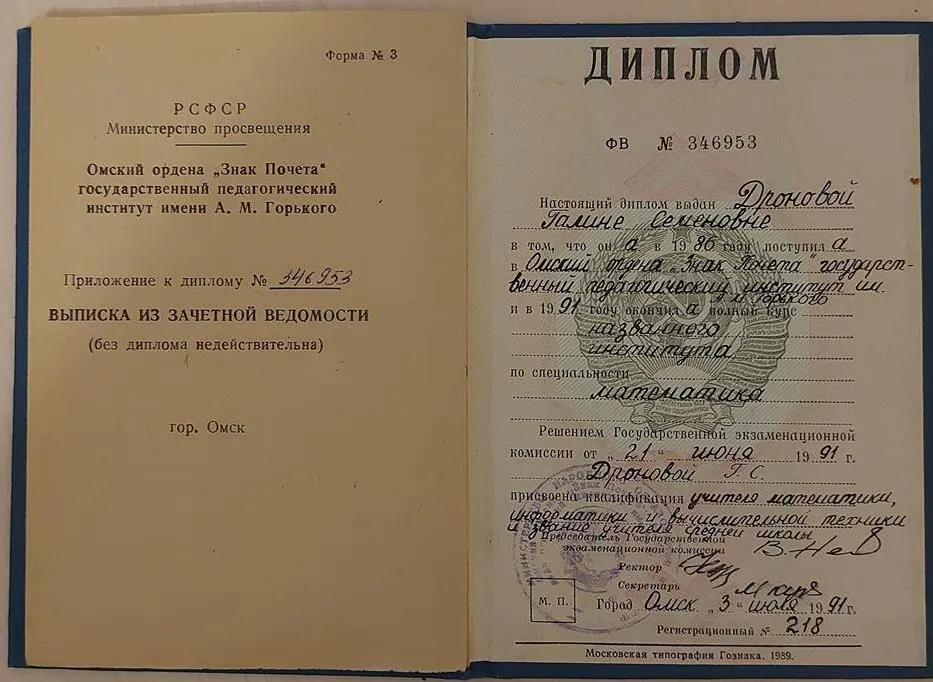 Форма № 3
РСФСР
Министерство просвещения
Омский ордена „Знак Почета“
государственный педагогический
институт имени А. М. Горького
Приложение к диплому № 346953
ВЫПИСКА ИЗ ЗАЧЕТНОЙ ВЕДОМОСТИ
(без диплома недействительна)
гор. Омск
ДИПЛОМ
ФВ № 346953
Настоящий диплом выдан Дроновой
Галине Семеновне
в том, что он а в 19 86 году поступил а
в Омский ордена „Знак Почета“ государст-
венный педагогический институт им.
А М Горького
и в 19 91 году окончил а полный курс
названного
института
по специальности
математика
Решением Государственной экзаменационной
комиссии от „ 21 “ июня 19 91 г.
Дроновой Г. С.
присвоена квалификация учителя математики,
информатики и вычислительной техники
и звание учителя средней школы
Председатель Государственной
экзаменационной комиссии
Ректор
Секретарь
М. П.
Город Омск „ 3 “ июля 19 91 г.
Регистрационный № 218
Московская типография Гознака. 1989.